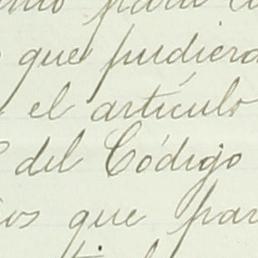 para
que pudiera
el artículo
del Código
que par